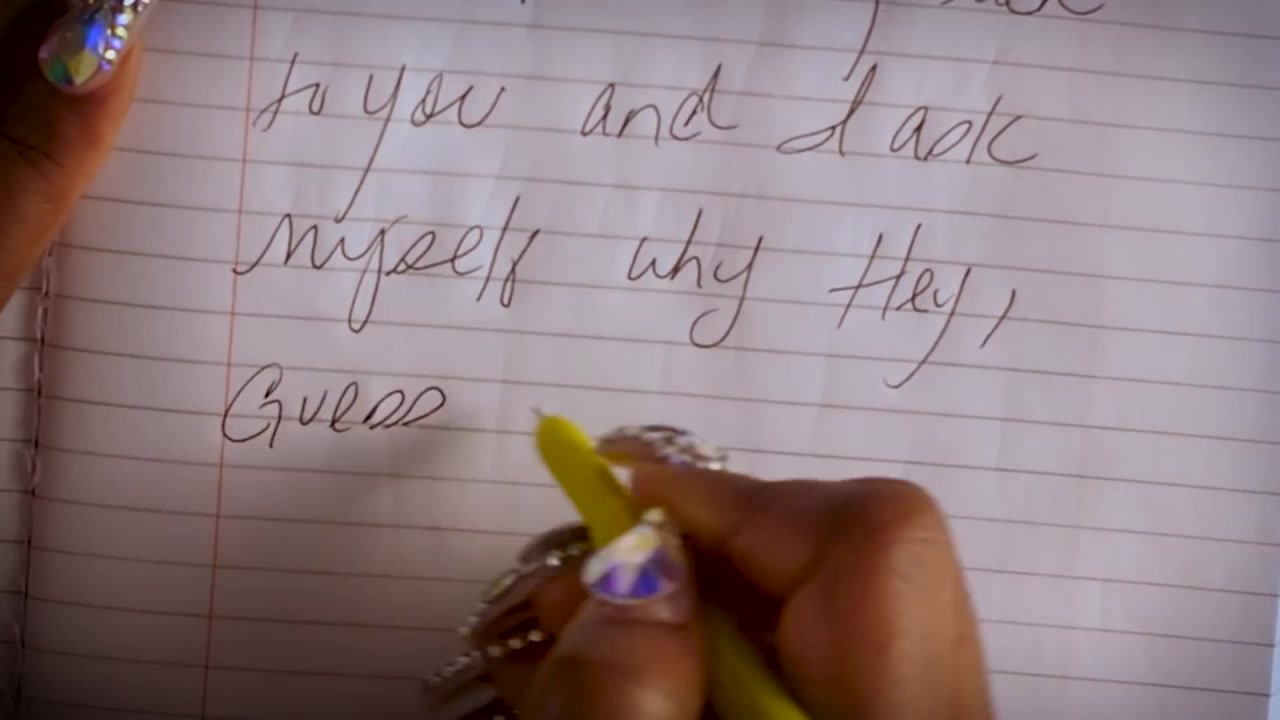 to you and I ask
myself why Hey,
Guess